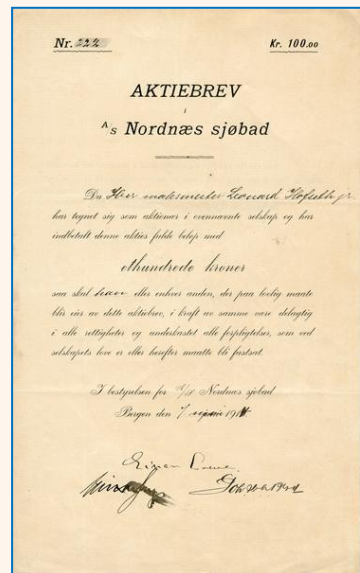 Nr. 222 Kr. 100.00
AKTIEBREV
i
A/s Nordnæs sjøbad
Da Herr malermester Leonard
har tegnet sig som aktionær i ovennævnte selskap og har
indbetalt denne akties fulde beløp med
ethundrede kroner
saa skal eller enhver anden, der paa lovlig maate
blir eier av dette aktiebrev, i kraft av samme være delagtig
i alle rettigheter og underkastet alle forpligtelser, som ved
selskapets love er eller herefter maatte bli fastsat.
I bestyrelsen for A/S Nordnæs sjøbad
Bergen den 7 19
Einar